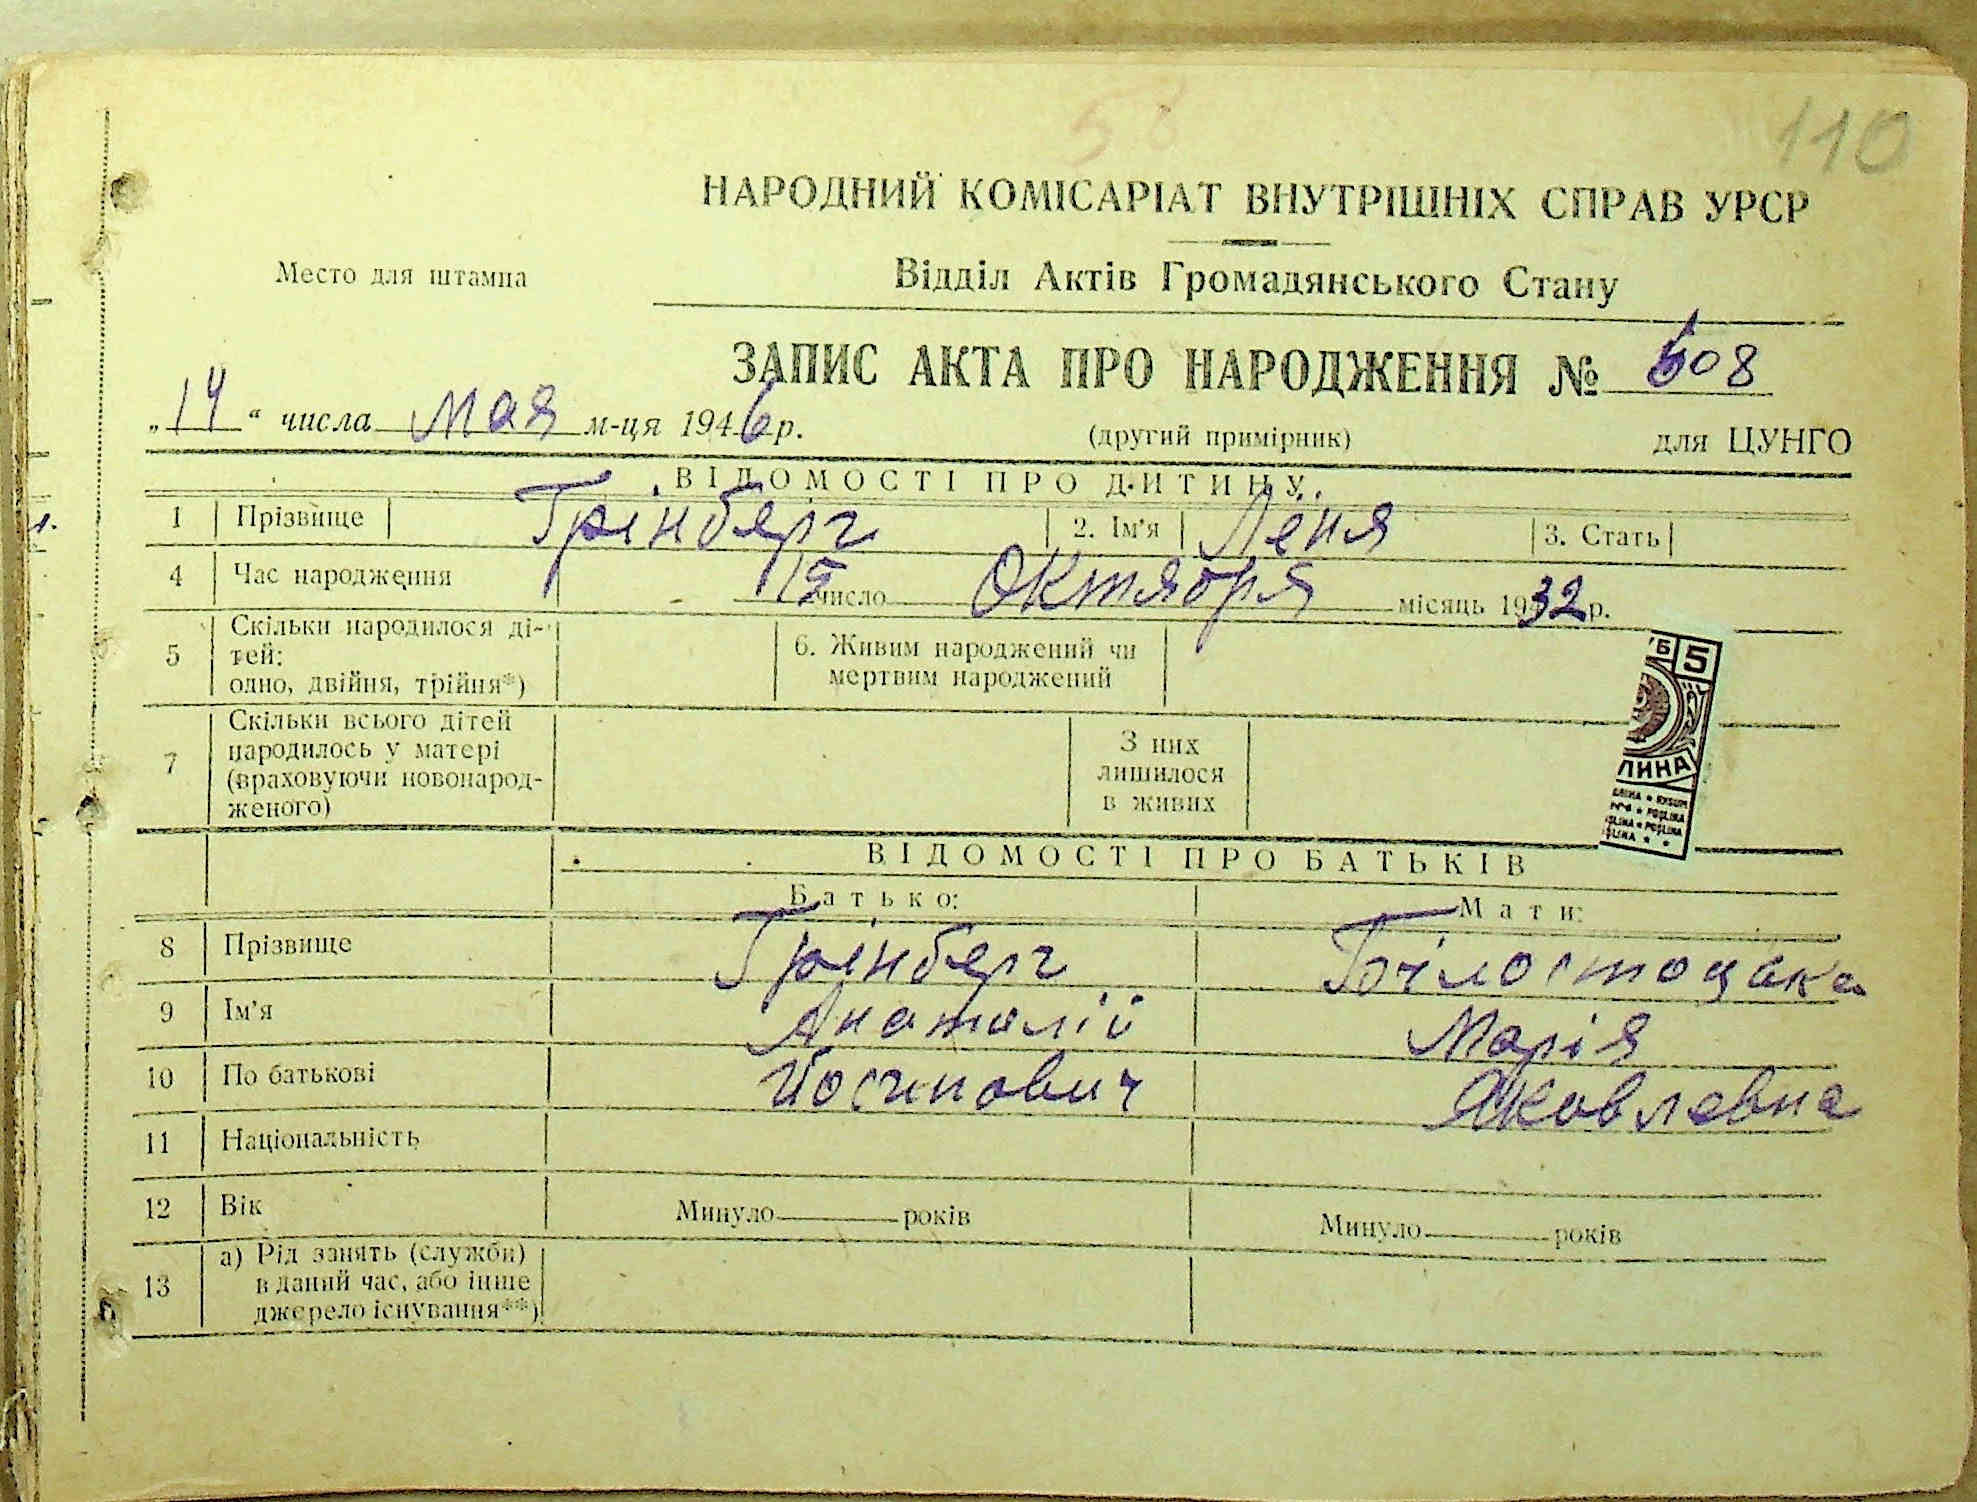 110
НАРОДНИЙ КОМІСАРІАТ ВНУТРІШНІХ СПРАВ УРСР
Место для штампа
Відділ Актів Громадянського Стану
ЗАПИС АКТА ПРО НАРОДЖЕННЯ № 608
„14“ числа мая м-ця 1946 р.
(другий примірник) для ЦУНГО
ВІДОМОСТІ ПРО ДИТИНУ
1 Прізвище Грінберг 2. Ім'я Лёня 3. Стать
4 Час народження число Октября місяць 1932 р.
5 Скільки народилося ді-
тей:
одно, двійня, трійня*)
6. Живим народжений чи
мертвим народжений
7 Скільки всього дітей
народилось у матері
(враховуючи новонарод-
женого)
З них
лишилося
в живих
5
ЛИНА
ВІДОМОСТІ ПРО БАТЬКІВ
Батько: Мати:
8 Прізвище Грінберг Білостоцька
9 Ім'я Анатолій Марія
10 По батькові Йосипович Яковлевна
11 Національність
12 Вік Минуло років Минуло років
13 а) Рід занять (служби)
в даний час, або інше
джерело існування**)